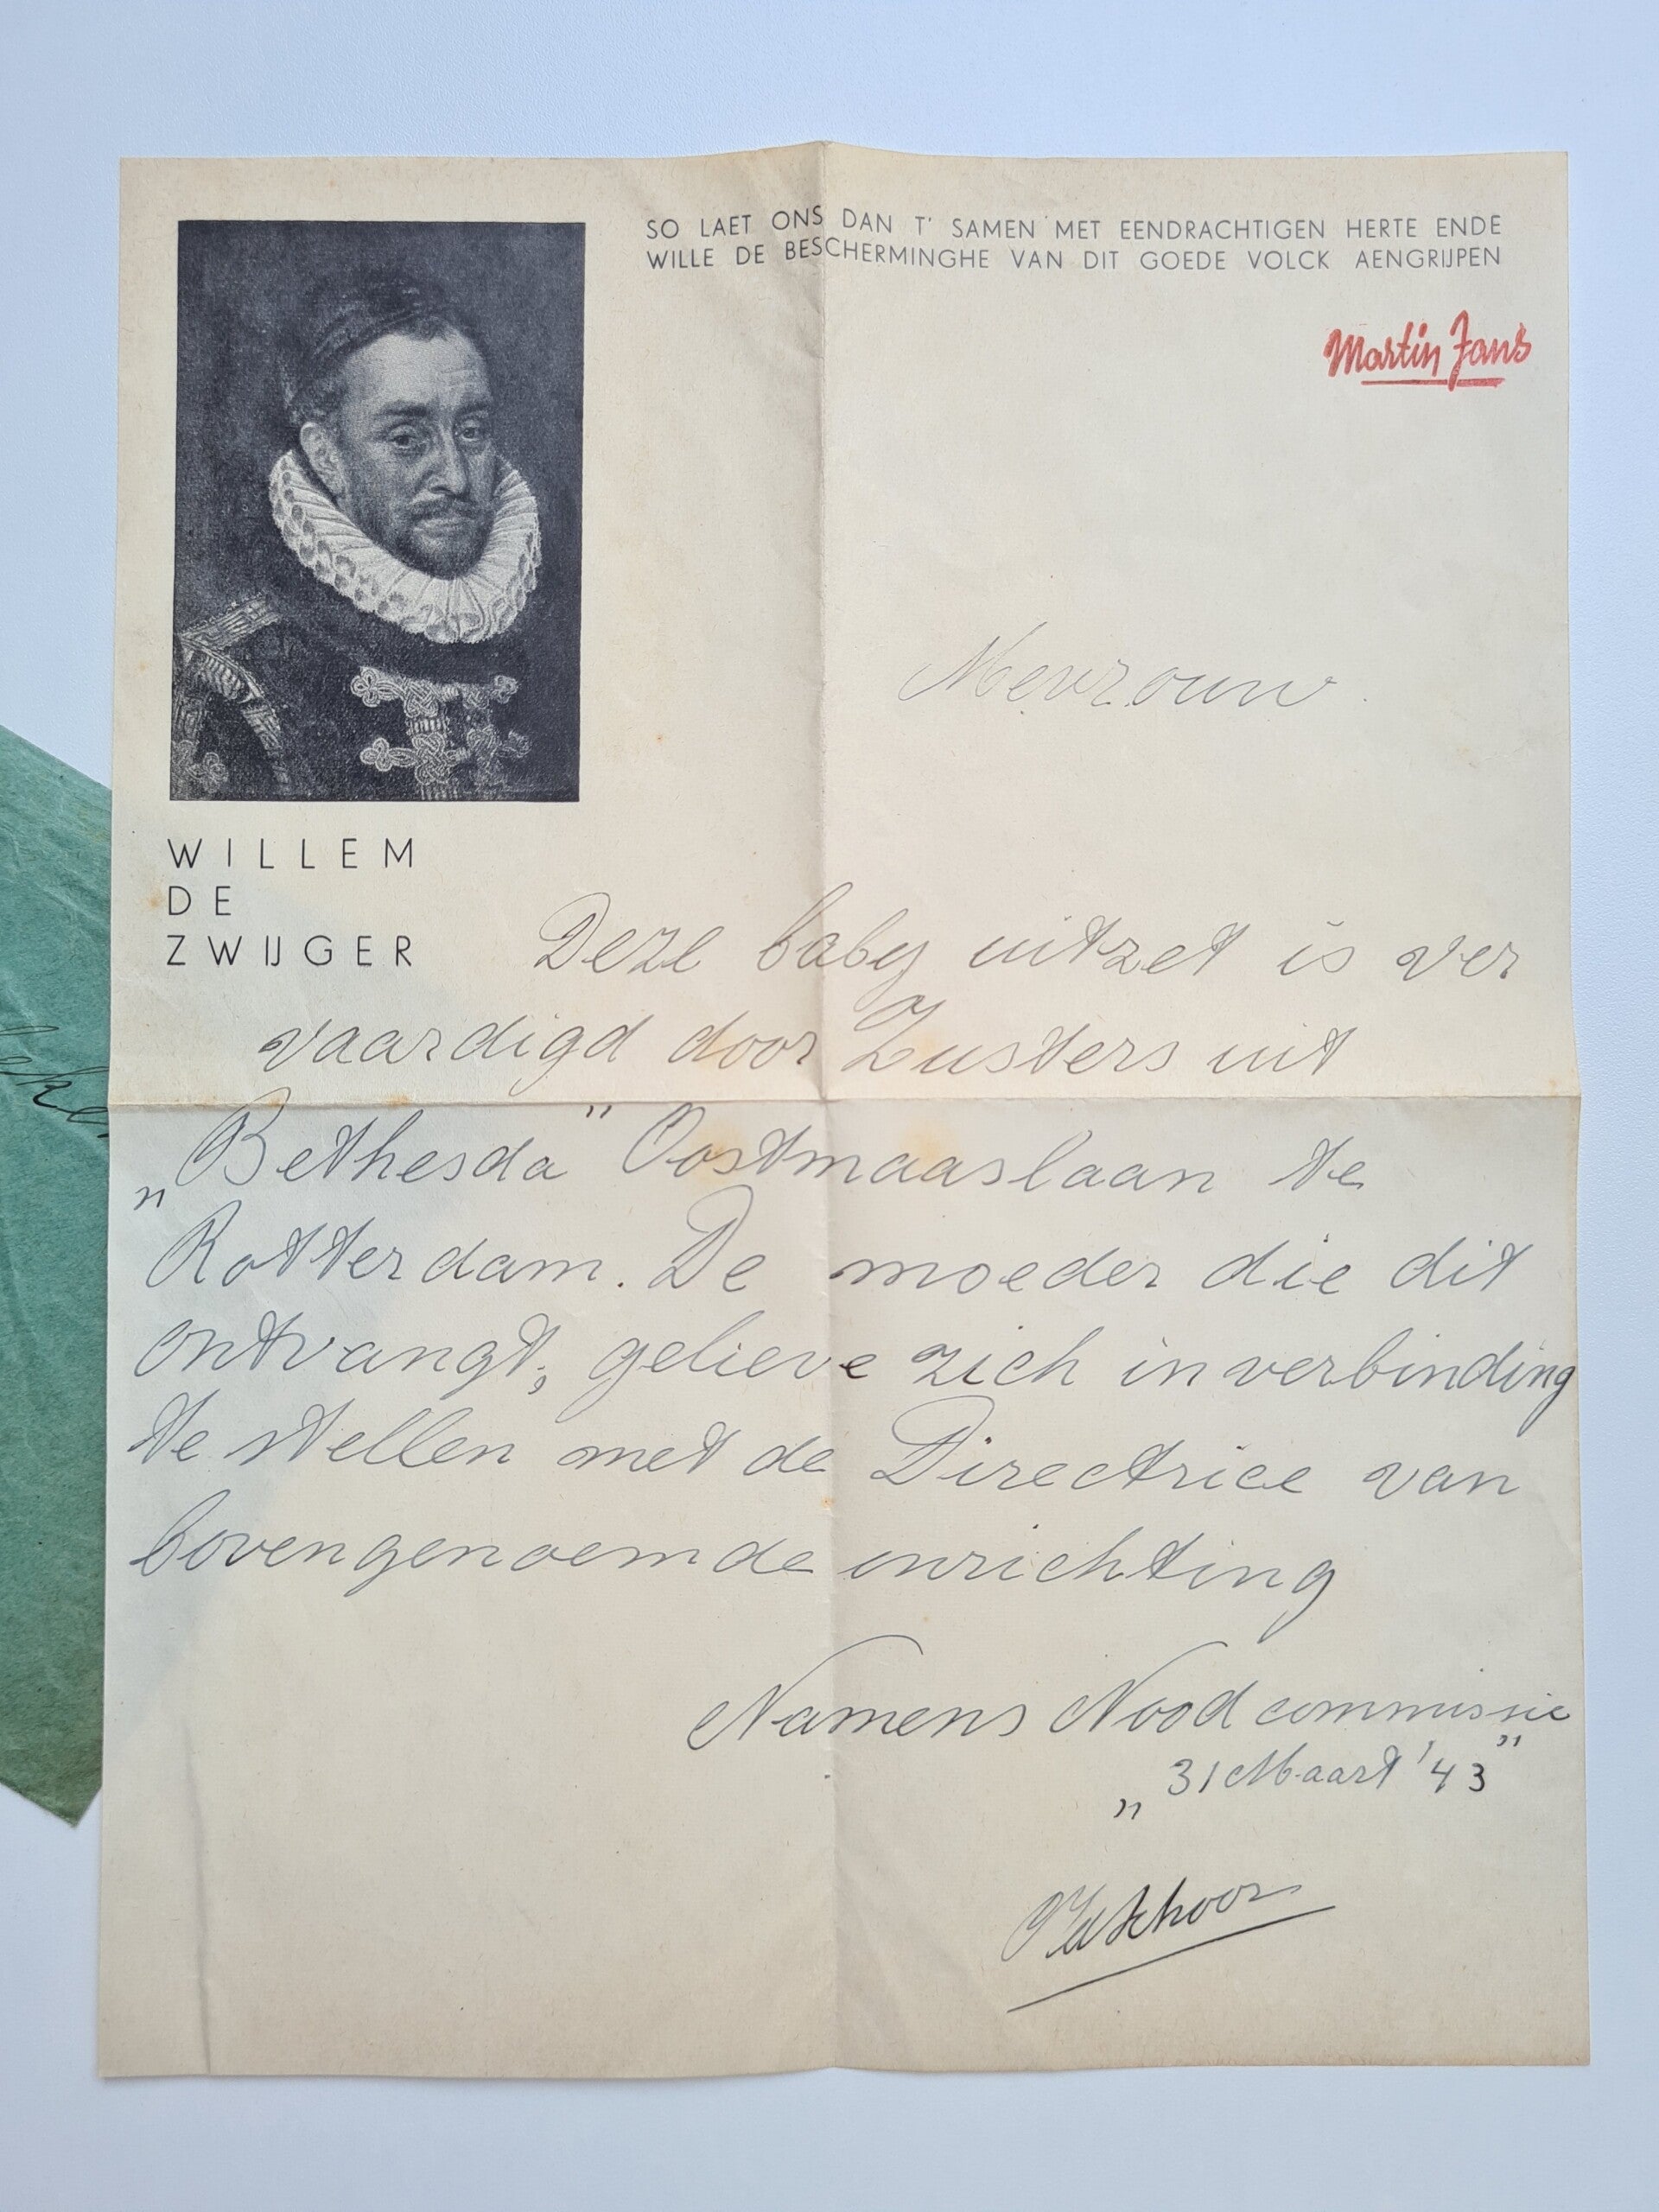 SO LAET ONS DAN T' SAMEN MET EENDRACHTIGEN HERTE ENDE
WILLE DE BESCHERMINGHE VAN DIT GOEDE VOLCK AENGRIJPEN
Martin Jans
Mevrouw.
WILLEM
DE
ZWIJGER
Deze baby uitzet is ver
vaardigd door Zusters uit
„Bethesda" Oostmaaslaan te
Rotterdam. De moeder die dit
ontvangt, gelieve zich in verbinding
te stellen met de Directrice van
bovengenoemde inrichting
Namens Noodcommissie
„31 Maart '43"